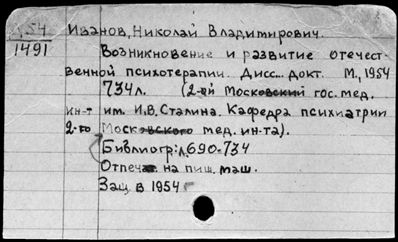 54
Иванов, Николай Владимирович.
1491
Возникновение и развитие отечест-
венной психотерапии. Дисс. докт. М., 1954
734 л. (2-ой Московский гос. мед.
ин-т им. И.В. Сталина. Кафедра психиатрии
2-го Московского мед. ин-та).
Библиогр: л. 690-734
Отпеч. на пиш. маш.
Защ. в 1954